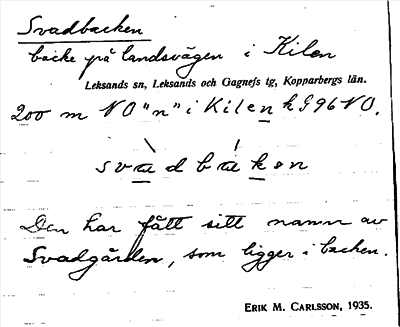 Svadbacken
backe på landsvägen i Kilen
Leksands sn, Leksands och Gagnefs tg, Kopparbergs län.
200 m NO "n" i Kilen k G96NO.
svadbakən
Den har fått sitt namn av
Svadgården, som ligger i backen.
ERIK M. CARLSSON, 1935.